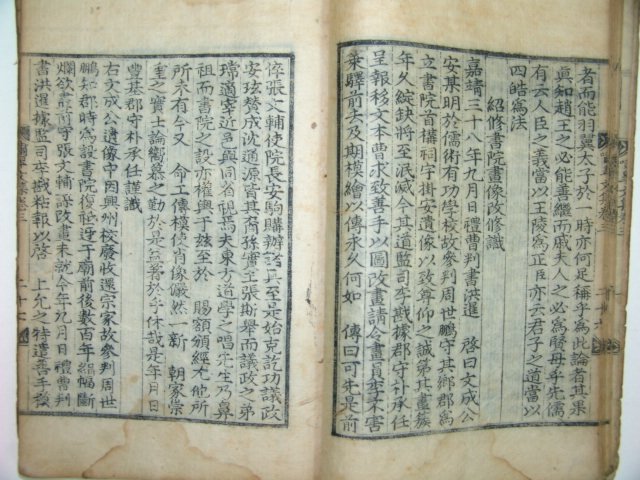 者而能羽翼太子於 時亦何足稱乎爲此論者其果
眞知趙王之必能善継而戚夫人之必爲賢母乎先儒
有云人臣之義當以王陵爲正臣亦云君子之道當以
四皓爲法
紹修書院畫像改修識
嘉靖三十八年九月日禮曹判書洪暹 啓曰文成公
安某明於儒術有功學校故參判周世鵬守其鄉郡爲
立書院首構祠宇掛安遺像以致尊仰之誠第其畫簇
年久綻缺將至泯滅今其道監司李戡據郡守朴承任
呈報移文本曹求致善手以圖改畫請令畫員李不害
乘驛前去及期模繪以傳永久何如 傳曰可先是前
倅張文輔使院長安駒購辦諸具至是始克訖功議政
安玹賛成沈通源皆其裔孫靈王張斯舉而議政之弟
瑺適宰近邑與同省視焉夫東方道學之唱先生乃鼻
祖而書院之設亦權輿于玆至於 賜額頒經尤他所
所未有今又 命工傳模使肖像儼然一新 朝家崇
重之實士論嚮慕之勤於是益著於乎休哉是年月日
豐基郡守朴承任謹識
右文成公遺像中因興州校廢收還宗家故參判周世
鵬知郡時爲設書院復祗迓于廟前後數百年絹幅斷
爛欲 前守張文輔 改畫未就今年九月日禮曹判
書洪暹據監司李戡粘報以啓 上允之特遣善手模
二十六
二十七